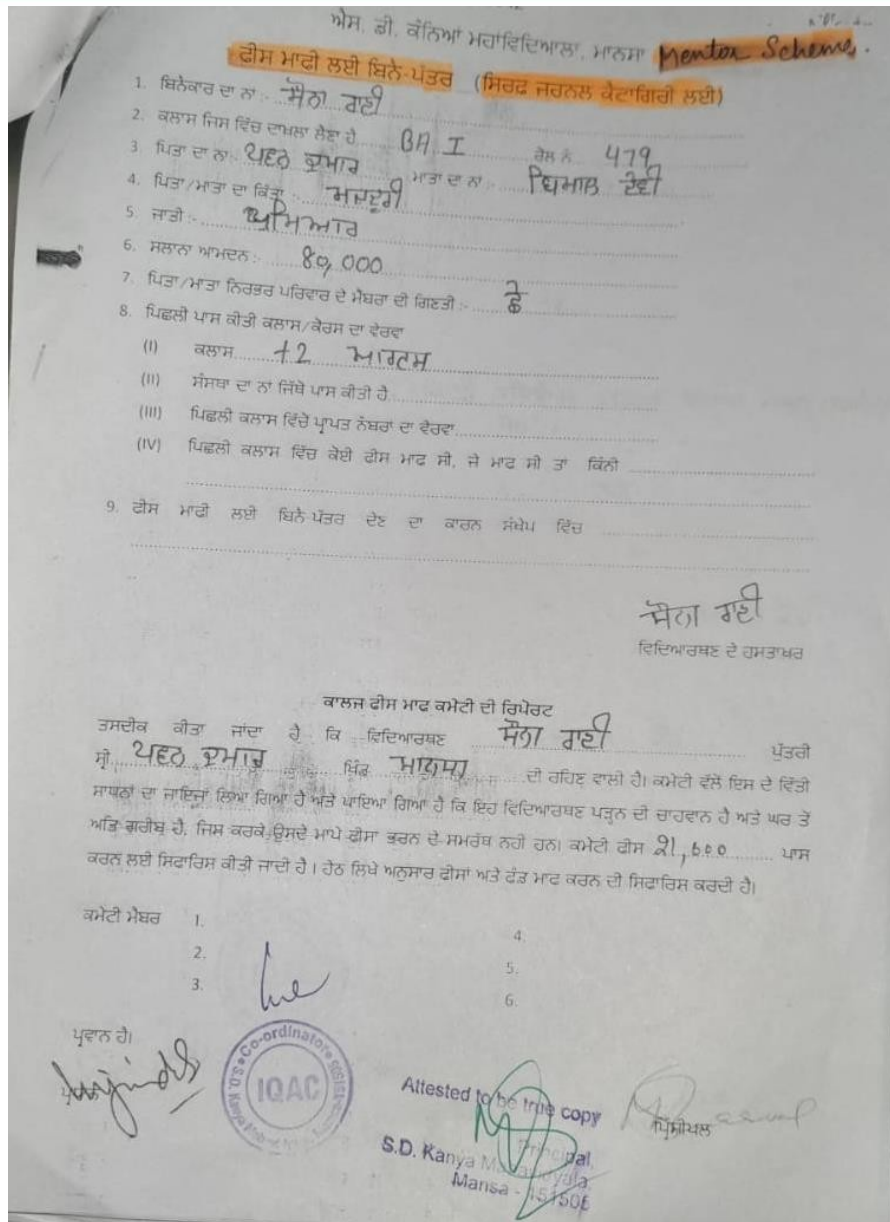 ਐਸ. ਡੀ. ਕੰਨਿਆਂ ਮਹਾਂਵਿਦਿਆਲਾ, ਮਾਨਸਾ Mentor Scheme.
ਫੀਸ ਮਾਫੀ ਲਈ ਬਿਨੈ-ਪੱਤਰ (ਸਿਰਫ ਜਰਨਲ ਕੈਟਾਗਿਰੀ ਲਈ)
1. ਬਿਨੈਕਾਰ ਦਾ ਨਾਂ :- ਸੋਨਾ ਰਾਣੀ
2. ਕਲਾਸ ਜਿਸ ਵਿੱਚ ਦਾਖਲਾ ਲੈਣਾ ਹੈ BA I ਰੋਲ ਨੰ. 479
3. ਪਿਤਾ ਦਾ ਨਾਂ: ਪਵਨ ਕੁਮਾਰ ਮਾਤਾ ਦਾ ਨਾਂ :- ਦੇਵੀ
4. ਪਿਤਾ/ਮਾਤਾ ਦਾ ਕਿੱਤਾ :- ਮਜਦੂਰੀ
5. ਜਾਤੀ :-
6. ਸਲਾਨਾ ਆਮਦਨ :- 80,000
7. ਪਿਤਾ/ਮਾਤਾ ਨਿਰਭਰ ਪਰਿਵਾਰ ਦੇ ਮੈਂਬਰਾਂ ਦੀ ਗਿਣਤੀ :- ਛੇ
8. ਪਿਛਲੀ ਪਾਸ ਕੀਤੀ ਕਲਾਸ/ਕੋਰਸ ਦਾ ਵੇਰਵਾ
(I) ਕਲਾਸ +2 ਆਰਟਸ
(II) ਸੰਸਥਾ ਦਾ ਨਾਂ ਜਿੱਥੋਂ ਪਾਸ ਕੀਤੀ ਹੈ
(III) ਪਿਛਲੀ ਕਲਾਸ ਵਿੱਚੋਂ ਪ੍ਰਾਪਤ ਨੰਬਰਾਂ ਦਾ ਵੇਰਵਾ
(IV) ਪਿਛਲੀ ਕਲਾਸ ਵਿੱਚ ਕੋਈ ਫੀਸ ਮਾਫ ਸੀ, ਜੇ ਮਾਫ ਸੀ ਤਾਂ ਕਿੰਨੀ
9. ਫੀਸ ਮਾਫੀ ਲਈ ਬਿਨੈ-ਪੱਤਰ ਦੇਣ ਦਾ ਕਾਰਨ ਸੰਖੇਪ ਵਿੱਚ
ਸੋਨਾ ਰਾਣੀ
ਵਿਦਿਆਰਥਣ ਦੇ ਹਸਤਾਖਰ
ਕਾਲਜ ਫੀਸ ਮਾਫ ਕਮੇਟੀ ਦੀ ਰਿਪੋਰਟ
ਤਸਦੀਕ ਕੀਤਾ ਜਾਂਦਾ ਹੈ ਕਿ ਵਿਦਿਆਰਥਣ ਸੋਨਾ ਰਾਣੀ ਪੁੱਤਰੀ
ਸ੍ਰੀ ਪਵਨ ਕੁਮਾਰ ਪਿੰਡ ਮਾਨਸਾ ਦੀ ਰਹਿਣ ਵਾਲੀ ਹੈ। ਕਮੇਟੀ ਵੱਲੋਂ ਇਸ ਦੇ ਵਿੱਤੀ
ਸਾਧਨਾਂ ਦਾ ਜਾਇਜਾ ਲਿਆ ਗਿਆ ਹੈ ਅਤੇ ਪਾਇਆ ਗਿਆ ਹੈ ਕਿ ਇਹ ਵਿਦਿਆਰਥਣ ਪੜ੍ਹਨ ਦੀ ਚਾਹਵਾਨ ਹੈ ਅਤੇ ਘਰ ਤੋਂ
ਅਤਿ ਗਰੀਬ ਹੈ, ਜਿਸ ਕਰਕੇ ਉਸਦੇ ਮਾਪੇ ਫੀਸਾਂ ਭਰਨ ਦੇ ਸਮਰੱਥ ਨਹੀਂ ਹਨ। ਕਮੇਟੀ ਫੀਸ 21,600 ਪਾਸ
ਕਰਨ ਲਈ ਸਿਫਾਰਿਸ ਕੀਤੀ ਜਾਂਦੀ ਹੈ। ਹੇਠ ਲਿਖੇ ਅਨੁਸਾਰ ਫੀਸਾਂ ਅਤੇ ਫੰਡ ਮਾਫ ਕਰਨ ਦੀ ਸਿਫਾਰਿਸ ਕਰਦੀ ਹੈ।
ਕਮੇਟੀ ਮੈਂਬਰ 1. 4.
2. 5.
3. 6.
ਪ੍ਰਵਾਨ ਹੈ।
Co-ordinator
IQAC
Attested to be true copy
ਪ੍ਰਿੰਸੀਪਲ
Principal,
S.D. Kanya Mahavidyala,
Mansa - 151505